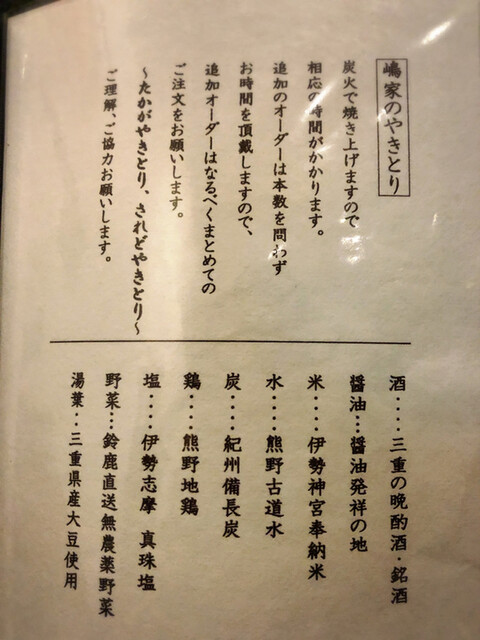 嶋家のやきとり
炭火で焼き上げますので
相応の時間がかかります。
追加のオーダーは本数を問わず
お時間を頂戴しますので、
追加オーダーはなるべくまとめての
ご注文をお願いします。
～たかがやきとり、されどやきとり～
ご理解、ご協力お願いします。
酒‥‥三重の晩酌酒・銘酒
醤油‥‥醤油発祥の地
米‥‥伊勢神宮奉納米
水‥‥熊野古道水
炭‥‥紀州備長炭
鶏‥‥熊野地鶏
塩‥‥伊勢志摩 真珠塩
野菜‥‥鈴鹿直送無農薬野菜
湯葉‥三重県産大豆使用